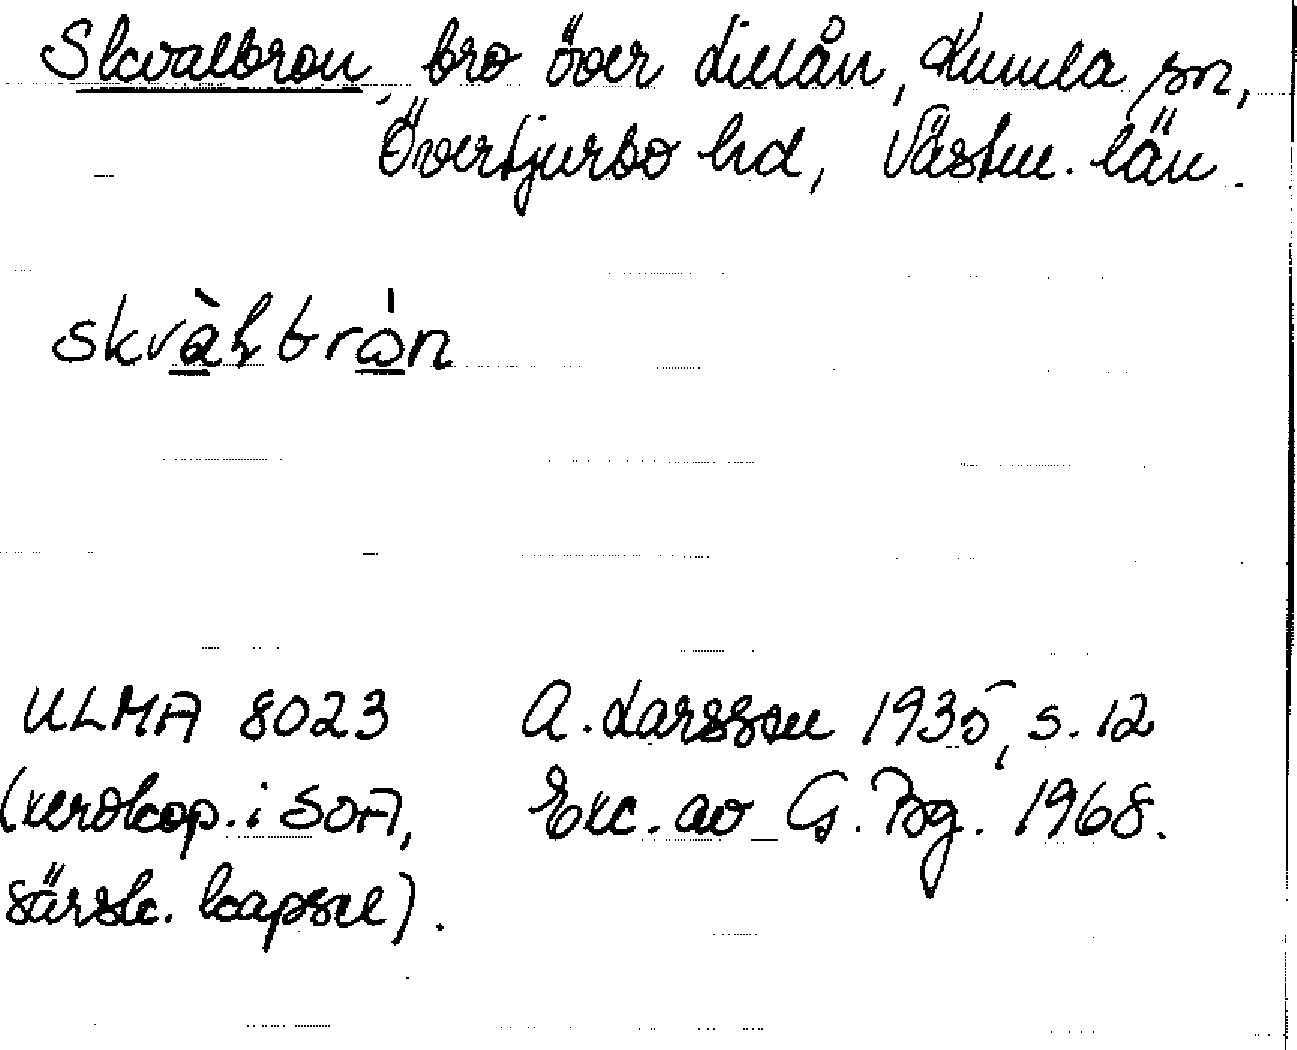 Skvalbron, bro över Lillån, Kumla sn,
Övertjurbo hd, Västm. län.
skvàlbrón
ULMA 8023 A. Larsson 1935, s. 12
(xerokop. i SOA, Exc. av G. Bg. 1968.
särsk. kapsel).